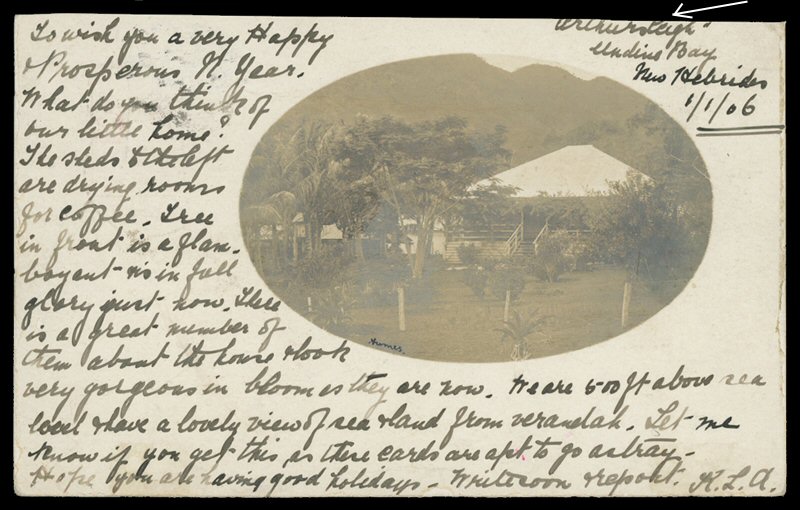 "Arthursleigh"
Undine Bay
New Hebrides
1/1/06
To wish you a very Happy
& Prosperous N. Year.
What do you think of
our little home?
The sheds to the left
are drying rooms
for coffee. Tree
in front is a flam-
boyant - is in full
glory just now. There
is a great number of
them about the house & look
very gorgeous in bloom as they are now. We are 500 ft above sea
level & have a lovely view of sea & land from verandah. Let me
know if you get this, as these cards are apt to go astray -
Hope you are having good holidays - Write soon & report. K.L.A.
Homes.